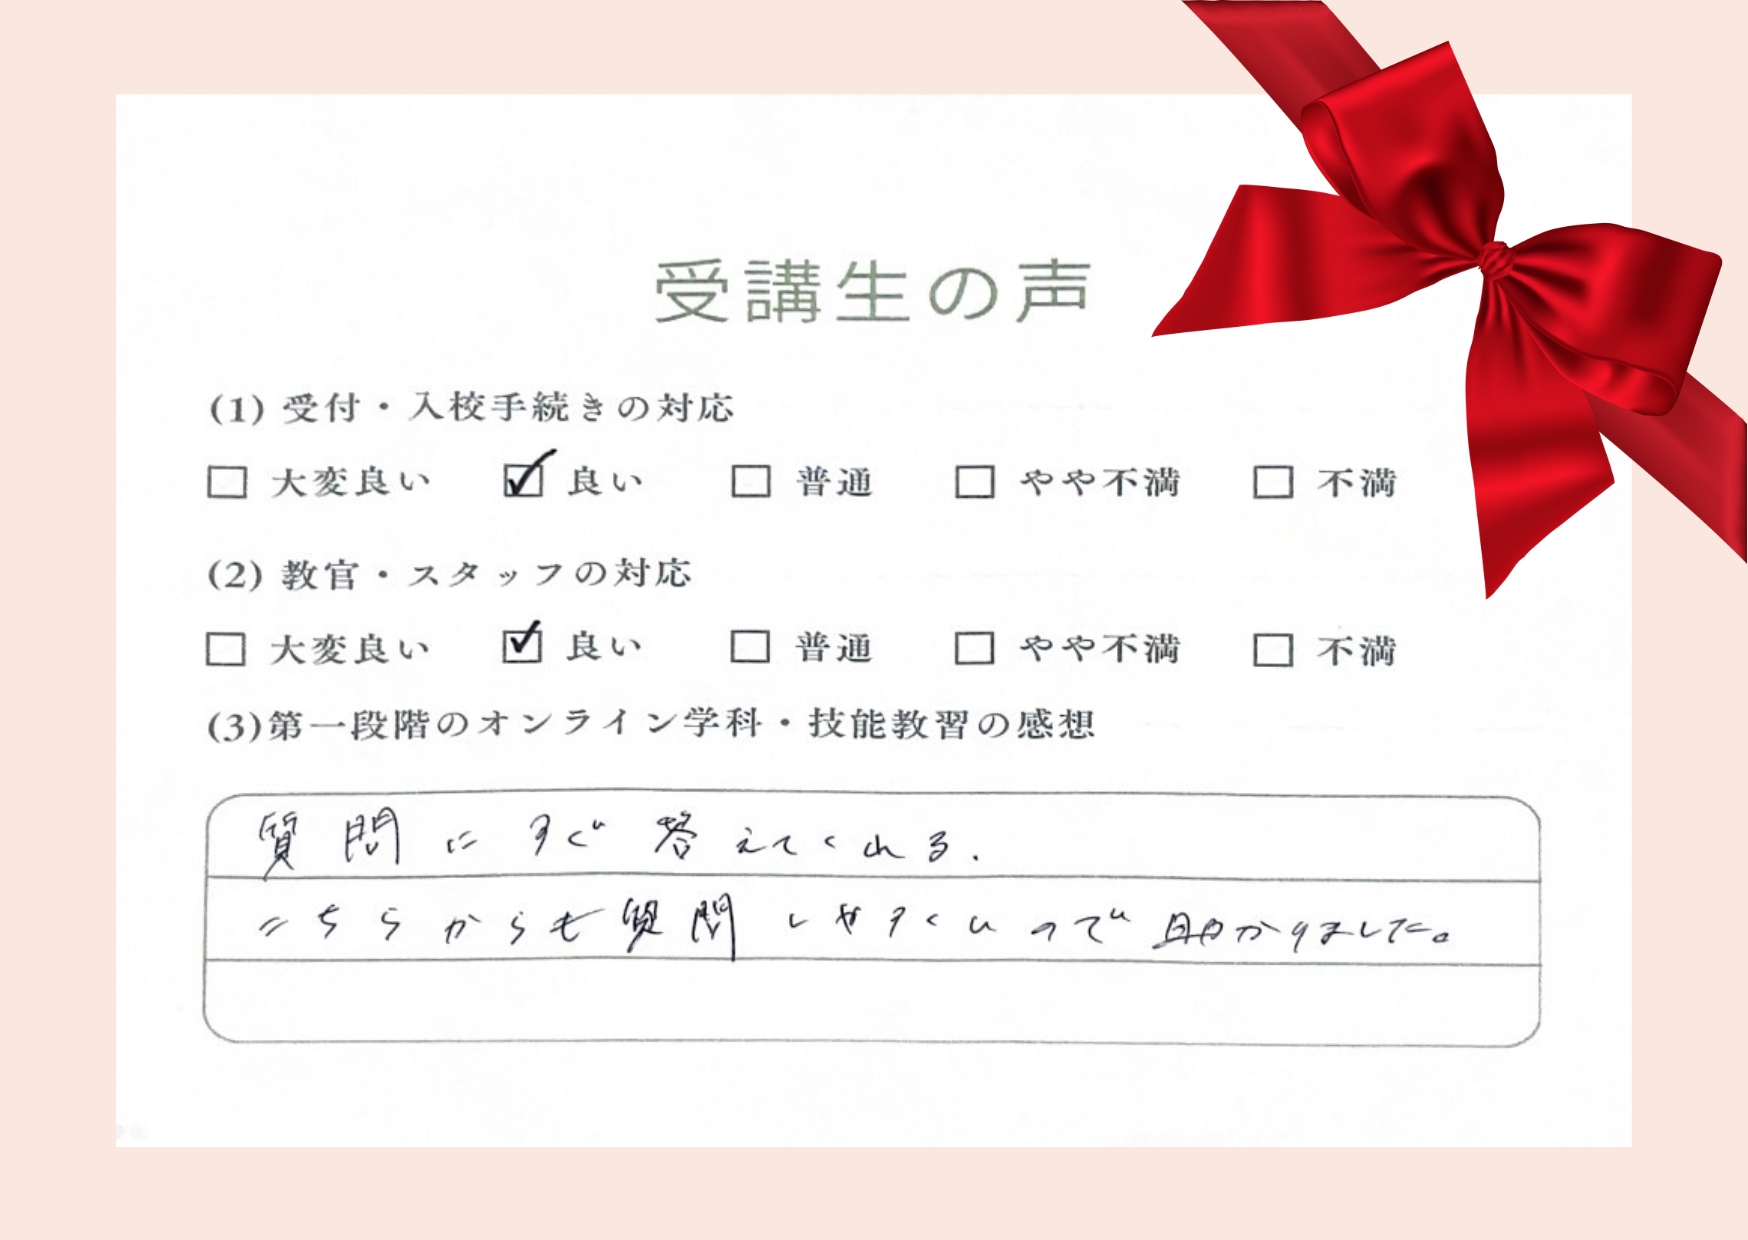 受講生の声
(1) 受付・入校手続きの対応
□ 大変良い ☑ 良い □ 普通 □ やや不満 □ 不満
(2) 教官・スタッフの対応
□ 大変良い ☑ 良い □ 普通 □ やや不満 □ 不満
(3)第一段階のオンライン学科・技能教習の感想
質問にすぐ答えてくれる.
こちらからも質問しやすくいので助かりました。